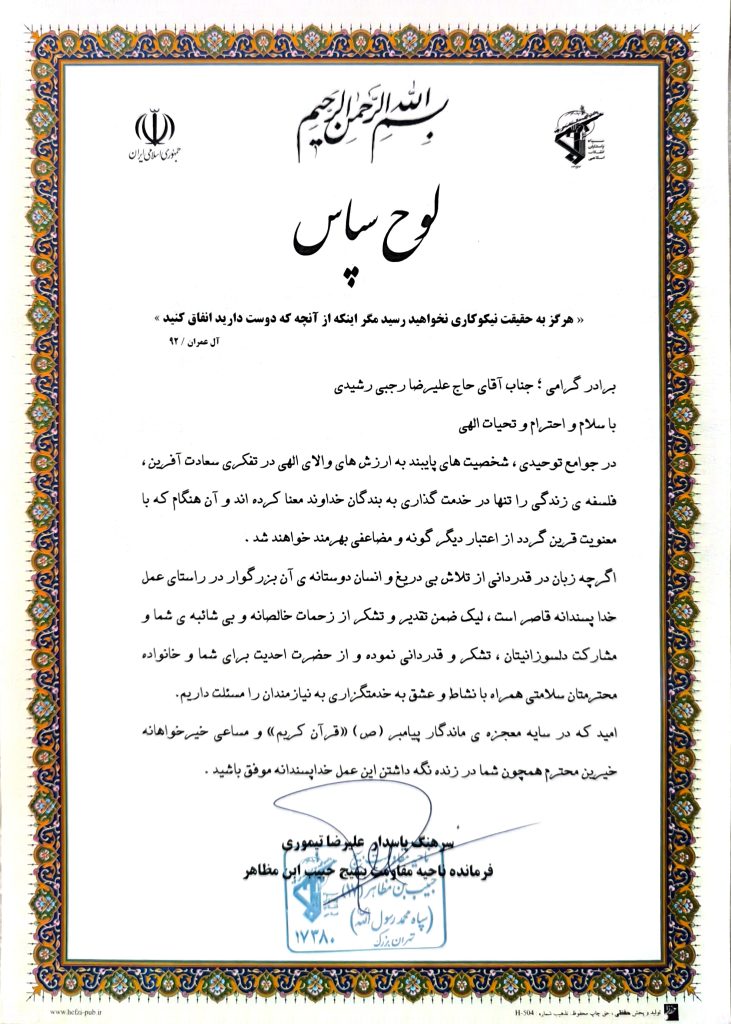 بسم الله الرحمن الرحیم
جمهوری اسلامی ایران
سپاه
پاسداران
انقلاب
اسلامی
لوح سپاس
« هرگز به حقیقت نیکوکاری نخواهید رسید مگر اینکه از آنچه که دوست دارید انفاق کنید »
آل عمران / ۹۲
برادر گرامی ؛ جناب آقای حاج علیرضا رجبی رشیدی
با سلام و احترام و تحیات الهی
در جوامع توحیدی ، شخصیت های پایبند به ارزش های والای الهی در تفکری سعادت آفرین ،
فلسفه ی زندگی را تنها در خدمت گذاری به بندگان خداوند معنا کرده اند و آن هنگام که با
معنویت قرین گردد از اعتبار دیگر گونه و مضاعفی بهرمند خواهند شد .
اگرچه زبان در قدردانی از تلاش بی دریغ و انسان دوستانه ی آن بزرگوار در راستای عمل
خدا پسندانه قاصر است ، لیک ضمن تقدیر و تشکر از زحمات خالصانه و بی شائبه ی شما و
مشارکت دلسوزانیتان ، تشکر و قدردانی نموده و از حضرت احدیت برای شما و خانواده
محترمتان سلامتی همراه با نشاط و عشق به خدمتگزاری به نیازمندان را مسئلت داریم.
امید که در سایه معجزه ی ماندگار پیامبر (ص) «قرآن کریم» و مساعی خیرخواهانه
خیرین محترم همچون شما در زنده نگه داشتن این عمل خداپسندانه موفق باشید .
سرهنگ پاسدار علیرضا تیموری
فرمانده ناحیه مقاومت بسیج حبیب ابن مظاهر
حبیب بن مظاهر (۱۷)
(سپاه محمد رسول الله)
تهران بزرگ
۱۷۳۸۰
www.hefzi-pub.ir
تولید و پخش حفظی ، حق چاپ محفوظ. تذهیب شماره H-504